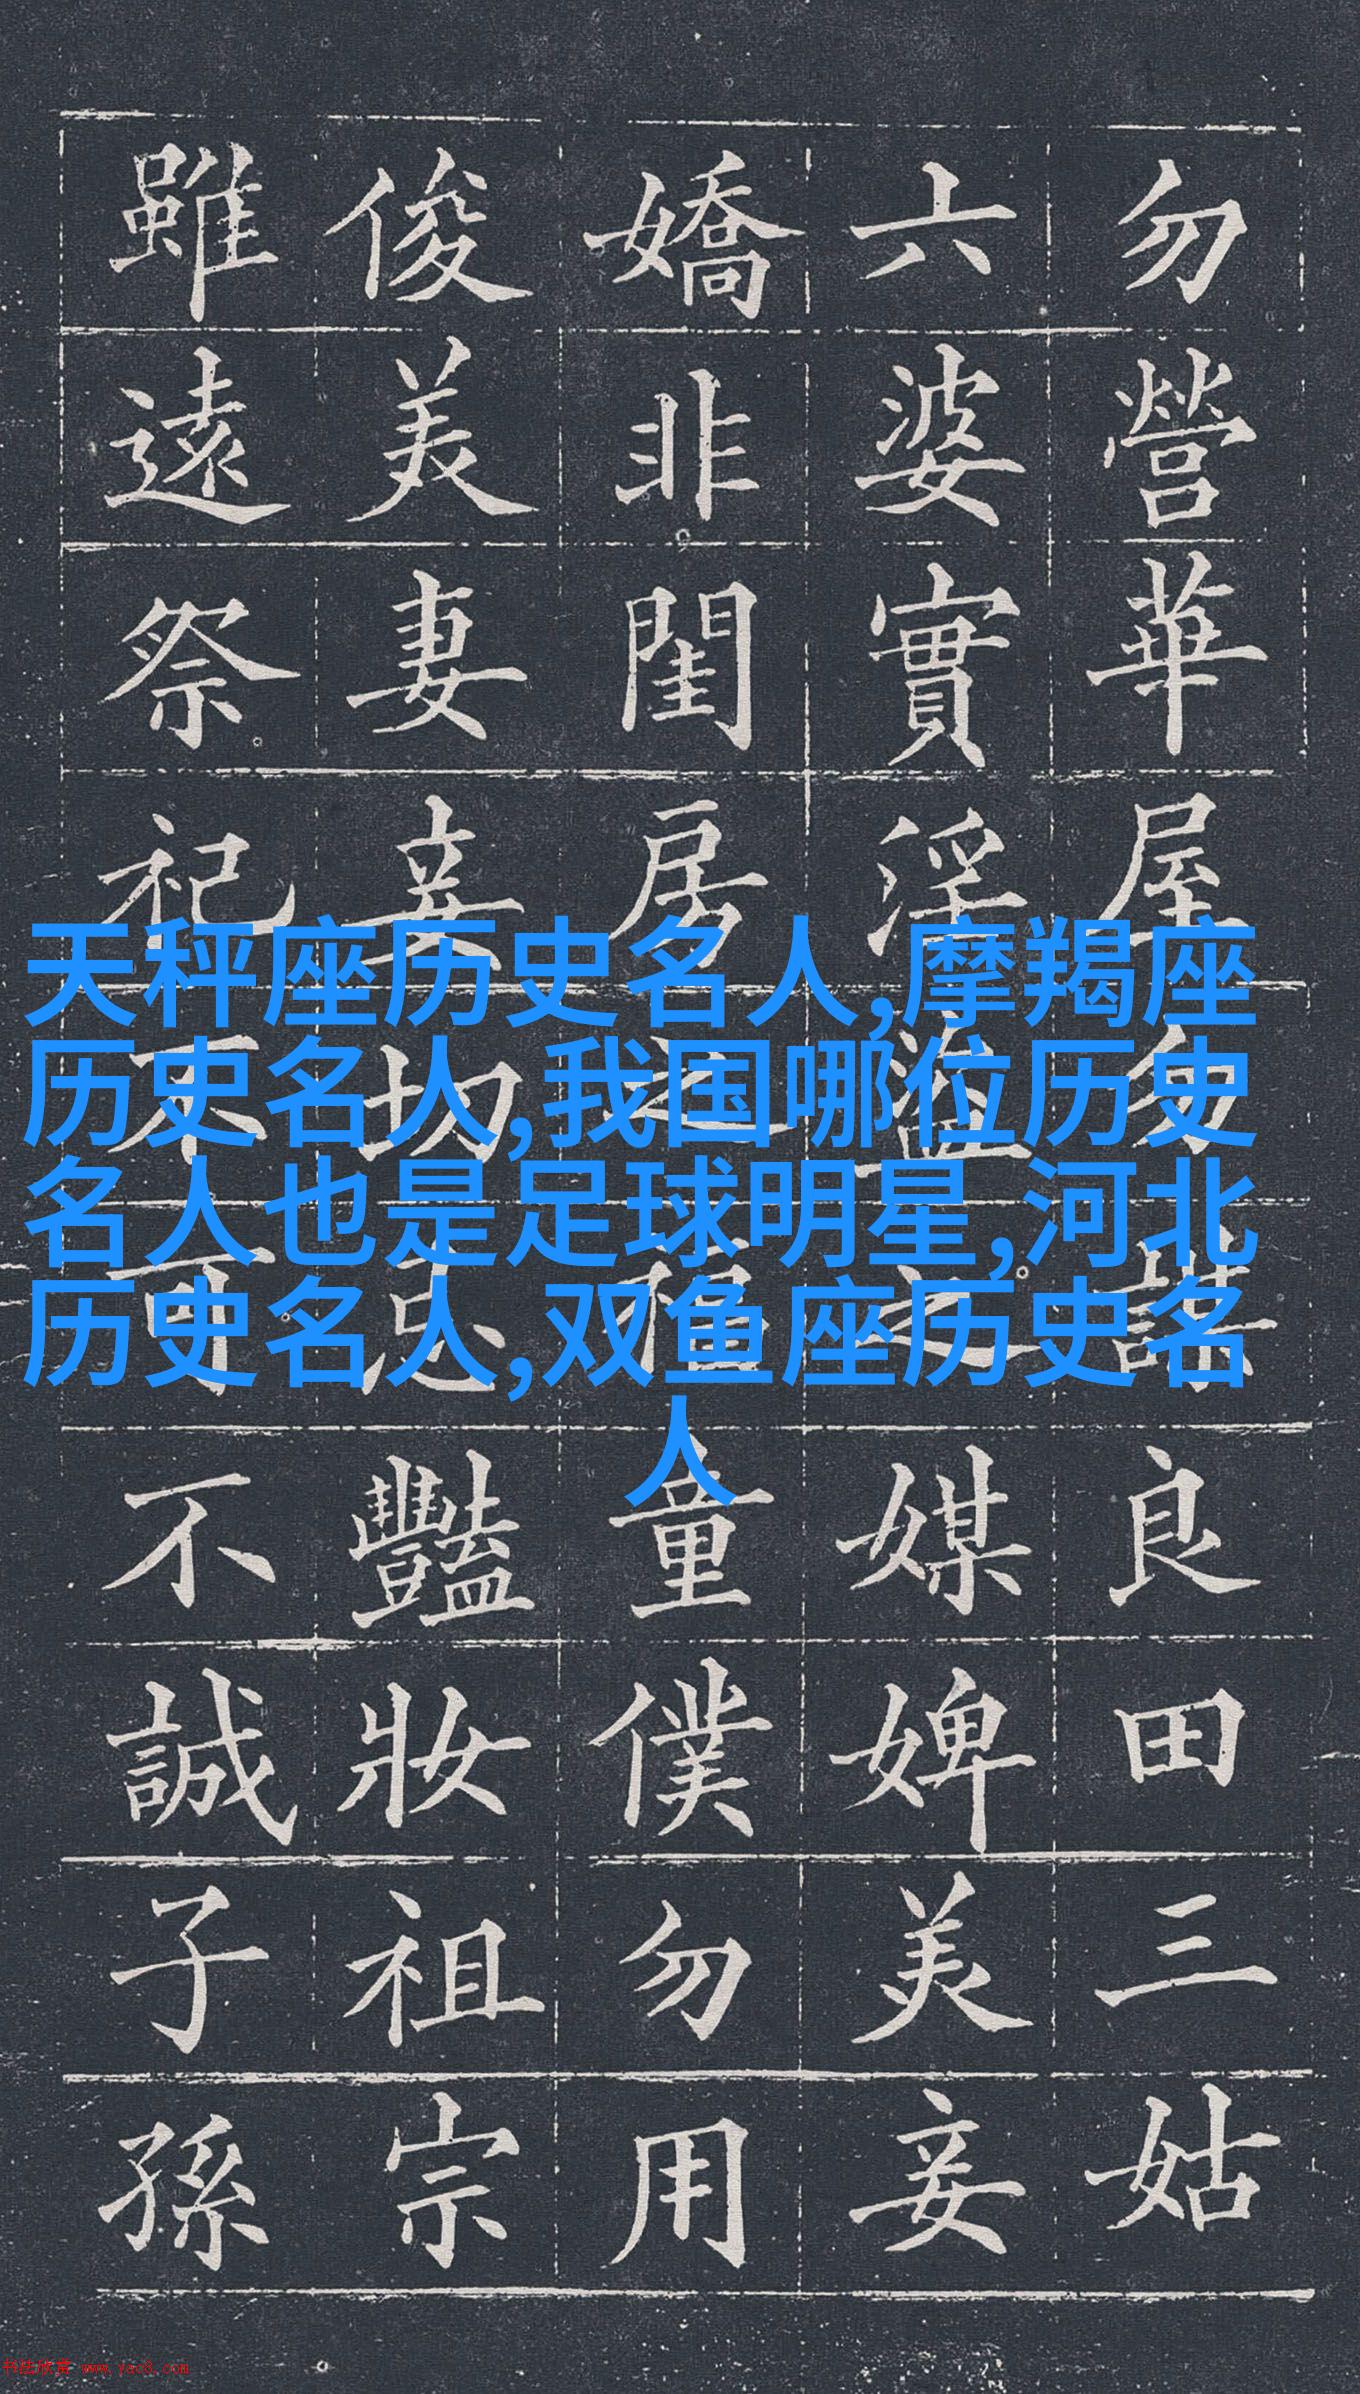 勿營華屋勿謀良田三姑
六婆實淫盜之媒婢美妾
嬌非閨房之福童僕勿用
俊美妻妾切忌豔妝祖宗
雖遠祭祀不可不誠子孫
天秤座历史名人,摩羯座
历史名人,我国哪位历史
名人也是足球明星,河北
历史名人,双鱼座历史名
人
书法欣赏 www.yac8.com